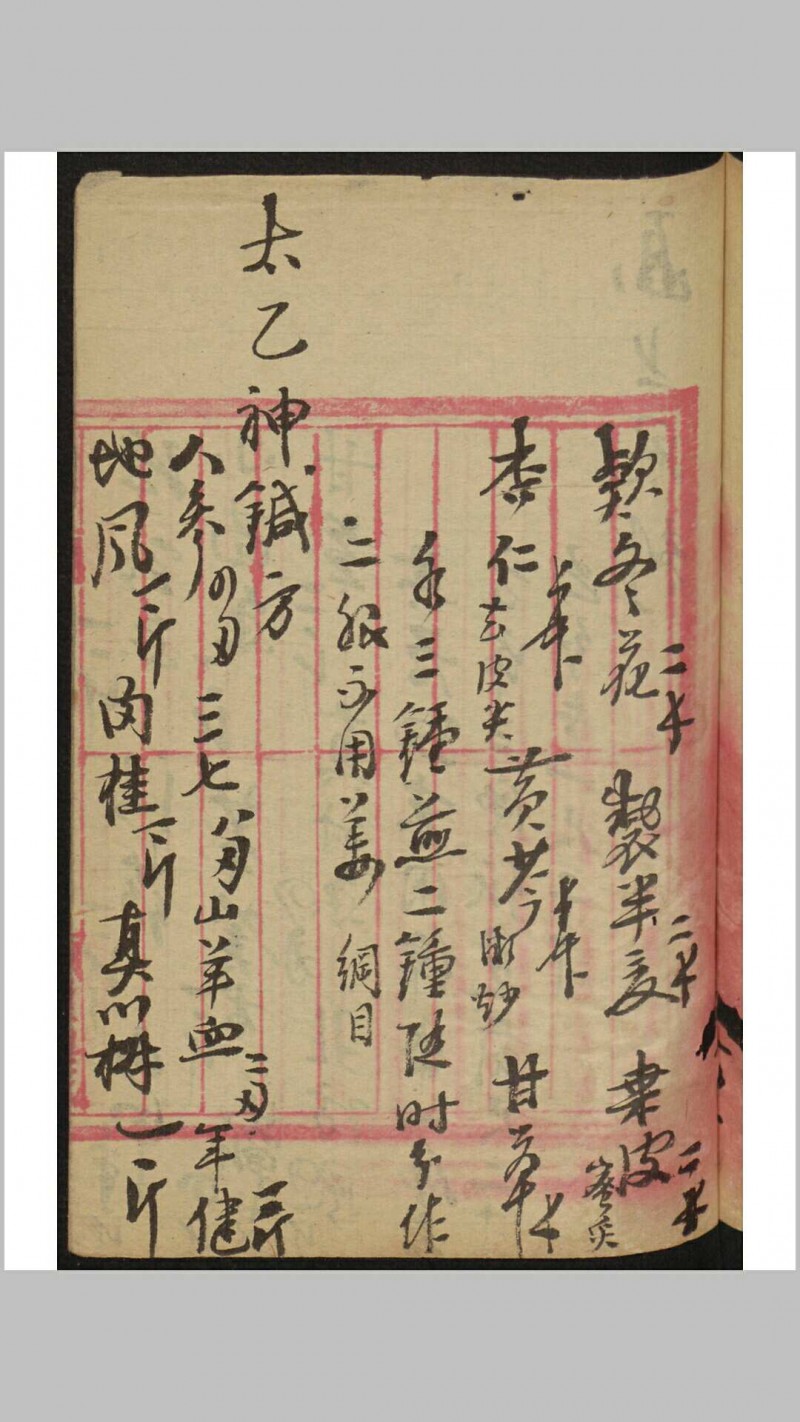 款冬花二錢 製半夏二錢 桑皮蜜炙二錢
杏仁去皮尖 黄芩微炒 甘草
水三鍾煎二鍾隨時分作
二服不用姜 綱目
太乙神鍼方
人參四兩 三七八兩 山羊血二兩 年健一斤
地風一斤 肉桂一斤 真川椒一斤